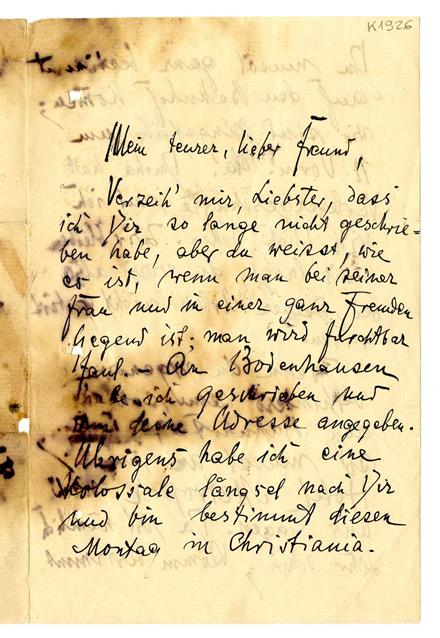 K1926
Mein teurer, lieber Freund,
Verzeih' mir, Liebster, dass
ich Dir so lange nicht geschrie=
ben habe, aber du weisst, wie
es ist, wenn man bei seiner
Frau und in einer ganz fremden
Gegend ist; man wird furchtbar
faul. – An Bodenhausen
habe ich geschrieben und
ihm deine Adresse angegeben.
Übrigens habe ich eine
kolossale längsel nach Dir
und bin bestimmt diesen
Montag in Christiania.